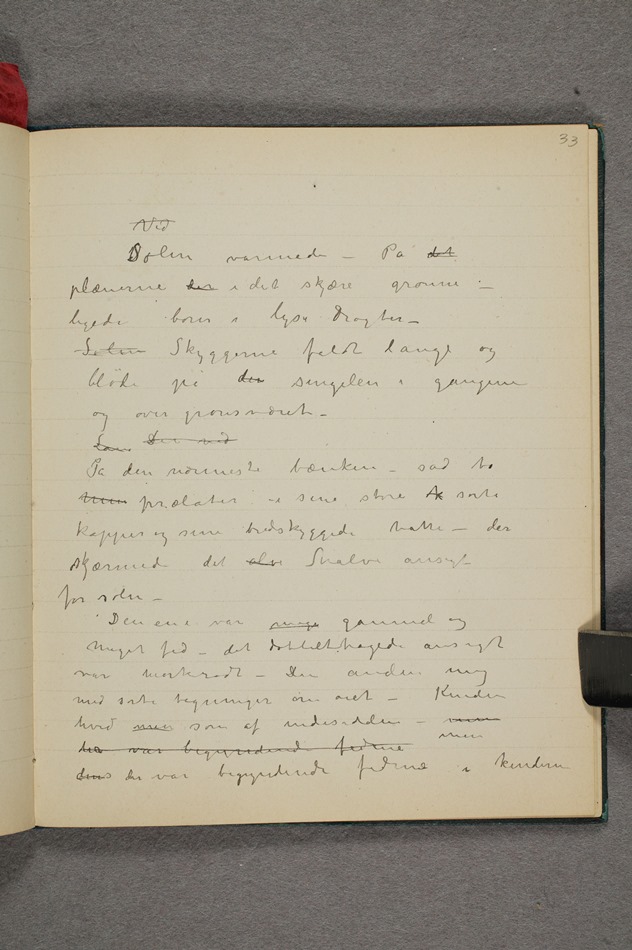 33
Ved
Solen varmede – På det
plænerne der i det skjære grønne –
legede børn i lyse dragter –
Solen Skyggerne faldt lange og
bløde på den singelen i gangene
og over grønsværet –
Som Der ved
På den nærmeste bænken – sad to
prælater – i sine store sorte
kapper og sine bredskyggede hatte – der
skjærmede det halve ansigt
for solen –
Den ene var meget gammel og
meget fed – det dobbelthagede ansigt
var mørkerødt – Den anden ung
med sorte tegninger om øiet – Kinden
hvid men som af indesidden –
men
der var begyndende fedme
der var begyndende fedme i kinderne